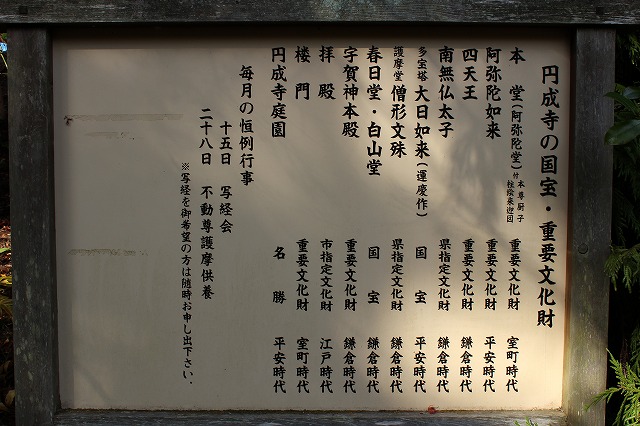 円成寺の国宝・重要文化財
本堂(阿弥陀堂)付 本尊厨子 柱絵来迎図 重要文化財 室町時代
阿弥陀如来 重要文化財 平安時代
四天王 重要文化財 鎌倉時代
南無仏太子 県指定文化財 鎌倉時代
多宝塔 大日如来(運慶作) 国宝 平安時代
護摩堂 僧形文殊 県指定文化財 鎌倉時代
春日堂・白山堂 国宝 鎌倉時代
宇賀神本殿 重要文化財 鎌倉時代
拝殿 市指定文化財 江戸時代
楼門 重要文化財 室町時代
円成寺庭園 名勝 平安時代
毎月の恒例行事
十五日 写経会
二十八日 不動尊護摩供養
※写経を御希望の方は随時お申し出下さい.